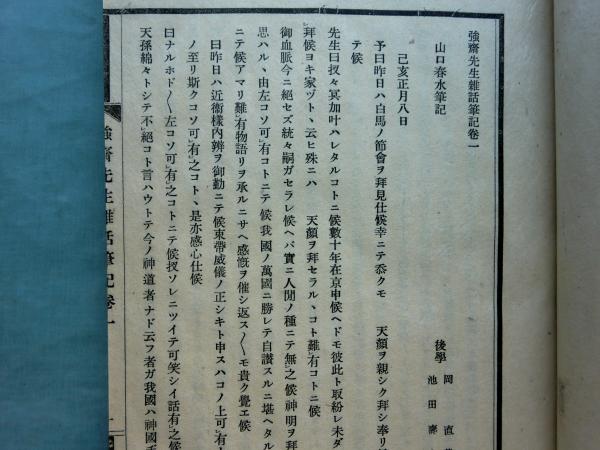 強齋先生雜話筆記卷一
山口春水筆記
後學 岡 直
池田
己亥正月八日
予曰昨日ハ白馬ノ節會ヲ拜見仕候幸ニテ忝クモ 天顔ヲ親シク拜シ奉リ
テ候
先生曰扠々冥加叶ハレタルコトニ候數十年在京申候ヘドモ彼此ト取紛レ未ダ
拜候ヨキ家ヅト、云ヒ殊ニハ 天顔ヲ拜セラル、コト難有コトニ候
御血脈今ニ絕セズ統々嗣ガセラレ候ヘバ實ニ人間ノ種ニテ無之候神明ヲ拜
思ハル、由左コソ可有コトニテ候我國ノ萬國ニ勝レテ自讃スルニ堪ヘタル
ニテ候アマリ難有物語リヲ承ルニサヘ感慨ヲ催シ返ス〱モ貴ク覺エ候
曰昨日ハ近衞樣內辨ヲ御勤ニテ候束帶威儀ノ正シキト申スハコノ上可有
ノ至リ斯クコソ可有之コト、是亦感心仕候
曰ナルホド〱左コソ可有之コトニテ候扠ソレニツイテ可笑シイ話有之候
天孫綿々トシテ不絕コト言ハウトテ今ノ神道者ナド云フ者ガ我國ハ神國
強齋先生雜話筆記卷一
一